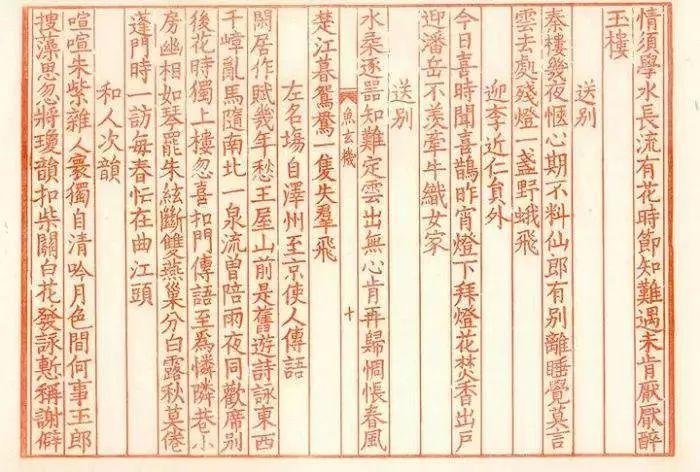 情須學水長流有花時節知難遇未肯厭厭醉
玉樓
送别
秦樓幾夜愜心期不料仙郎有别離睡覺莫言
雲去處殘燈一盞野蛾飛
迎李近仁員外
今日喜時聞喜鵲昨宵燈下拜燈花焚香出戶
迎潘岳不羨牽牛織女家
送别
水柔逐器知難定雲出無心肯再歸惆悵春風
魚玄機
十
楚江暮鴛鴦一隻失羣飛
左名塲自澤州至京使人傳語
閑居作賦幾年愁王屋山前是舊遊詩詠東西
千嶂亂馬隨南北一泉流曾陪雨夜同歡席别
後花時獨上樓忽喜扣門傳語至爲憐隣巷小
房幽相如琴罷朱絃斷雙燕巢分白露秋莫倦
蓬門時一訪每春忙在曲江頭
和人次韻
喧喧朱紫雜人寰獨自清吟月色間何事玉郎
搜藻思忽將瓊韻扣柴關白花發詠慙稱謝僻